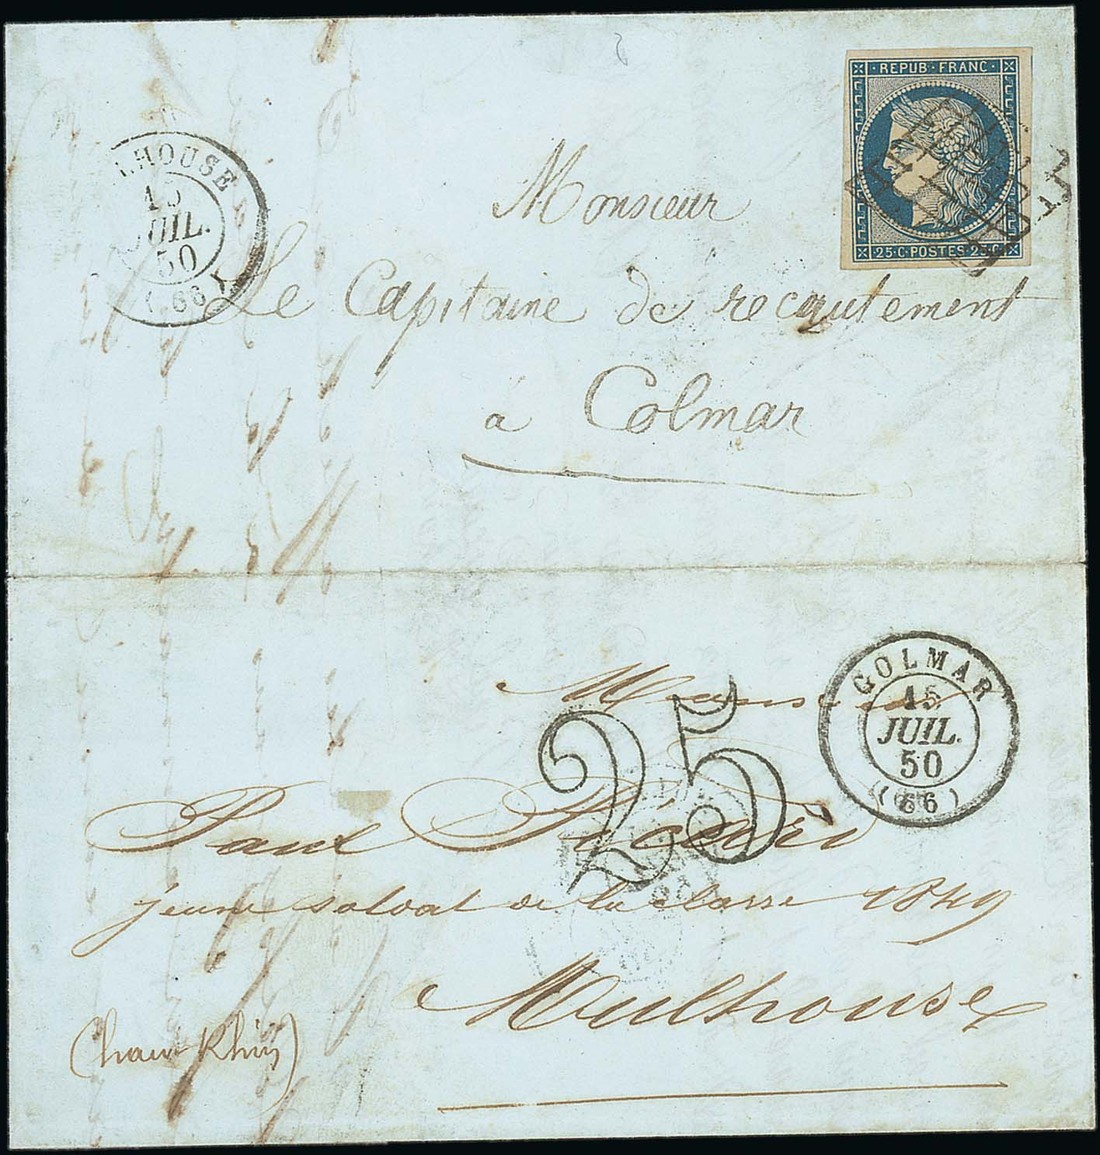 REPUB·FRANC·
25·C·POSTES·25·C·
LHOUSE
15
JUIL.
50
(66)
Monsieur
Le Capitaine de recrutement
à Colmar
COLMAR
15
JUIL.
50
(66)
25
Monsieur
Paul
jeune soldat de la classe 1849
Mulhouse
(haut Rhin)